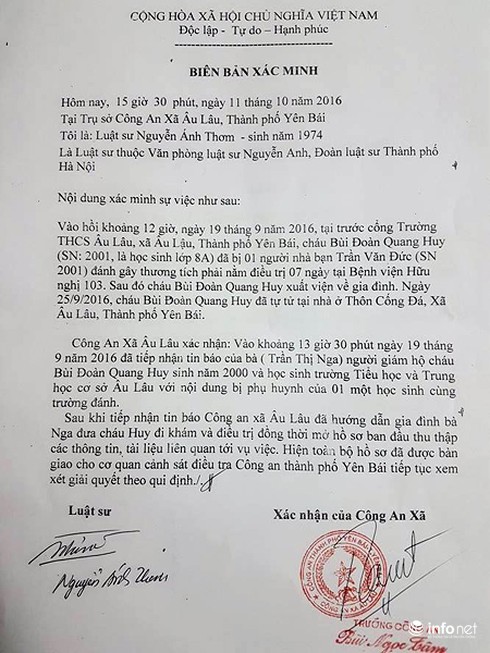 CỘNG HÒA XÃ HỘI CHỦ NGHĨA VIỆT NAM
Độc lập - Tự do – Hạnh phúc
BIÊN BẢN XÁC MINH
Hôm nay, 15 giờ 30 phút, ngày 11 tháng 10 năm 2016
Tại Trụ sở Công An Xã Âu Lâu, Thành phố Yên Bái
Tôi là: Luật sư Nguyễn Ánh Thơm - sinh năm 1974
Là Luật sư thuộc Văn phòng luật sư Nguyễn Anh, Đoàn luật sư Thành phố
Hà Nội
Nội dung xác minh sự việc như sau:
Vào hồi khoảng 12 giờ, ngày 19 tháng 9 năm 2016, tại trước cổng Trường
THCS Âu Lâu, xã Âu Lậu, Thành phố Yên Bái, cháu Bùi Đoàn Quang Huy
(SN: 2001, là học sinh lớp 8A) đã bị 01 người nhà bạn Trần Văn Đức (SN
2001) đánh gây thương tích phải nằm điều trị 07 ngày tại Bệnh viện Hữu
nghị 103. Sau đó cháu Bùi Đoàn Quang Huy xuất viện về gia đình. Ngày
25/9/2016, cháu Bùi Đoàn Quang Huy đã tự tử tại nhà ở Thôn Cống Đá, Xã
Âu Lâu, Thành phố Yên Bái.
Công An Xã Âu Lâu xác nhận: Vào khoảng 13 giờ 30 phút ngày 19 tháng
9 năm 2016 đã tiếp nhận tin báo của bà ( Trần Thị Nga) người giám hộ cháu
Bùi Đoàn Quang Huy sinh năm 2000 và học sinh trường Tiểu học và Trung
học cơ sở Âu Lâu với nội dung bị phụ huynh của 01 một học sinh cùng
trường đánh.
Sau khi tiếp nhận tin báo Công an xã Âu Lâu đã hướng dẫn gia đình bà
Nga đưa cháu Huy đi khám và điều trị đồng thời mở hồ sơ ban đầu thu thập
các thông tin, tài liệu liên quan tới vụ việc. Hiện toàn bộ hồ sơ đã được bàn
giao cho cơ quan cảnh sát điều tra Công an thành phố Yên Bái tiếp tục xem
xét giải quyết theo qui định./.
Luật sư
Xác nhận của Công An Xã
CÔNG AN THÀNH PHỐ YÊN BÁI
CÔNG AN XÃ
TRƯỞNG CÔNG AN
Bùi Ngọc
infonet